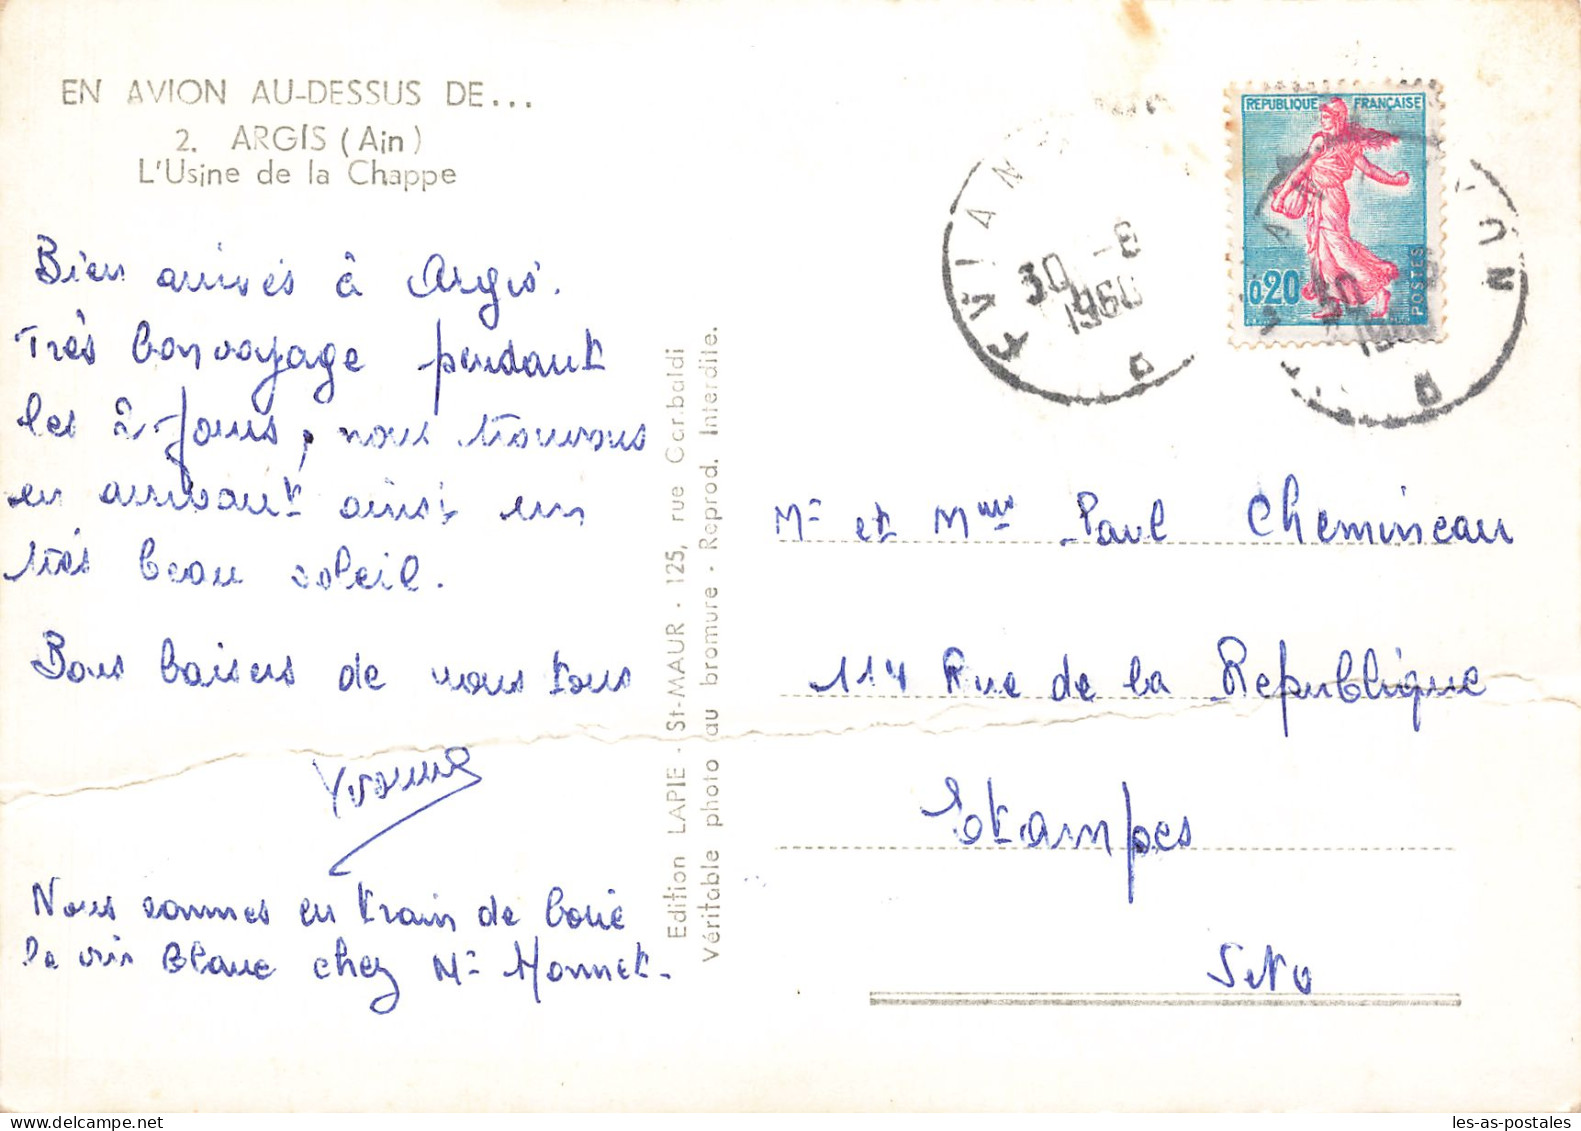 EN AVION AU-DESSUS DE...
2. ARGIS (Ain)
L'Usine de la Chappe
Bien arrivés à Argis.
Très bon voyage pendant
les 2 Jours, nous trouvons
en arrivant ainsi un
très beau soleil.
Bons baisers de nous tous
Yvonne
Nous sommes en train de boire
Du vin Blanc chez Mr Monnet.
Edition LAPIE - St-MAUR - 125, rue Garibaldi
Véritable photo au bromure - Reprod. Interdite.
REPUBLIQUE FRANÇAISE
0,20
POSTES
30 -8
1960
Mr et Mme Paul Chemineau
114 Rue de la Republique
Etampes
S et O
les-as-postales